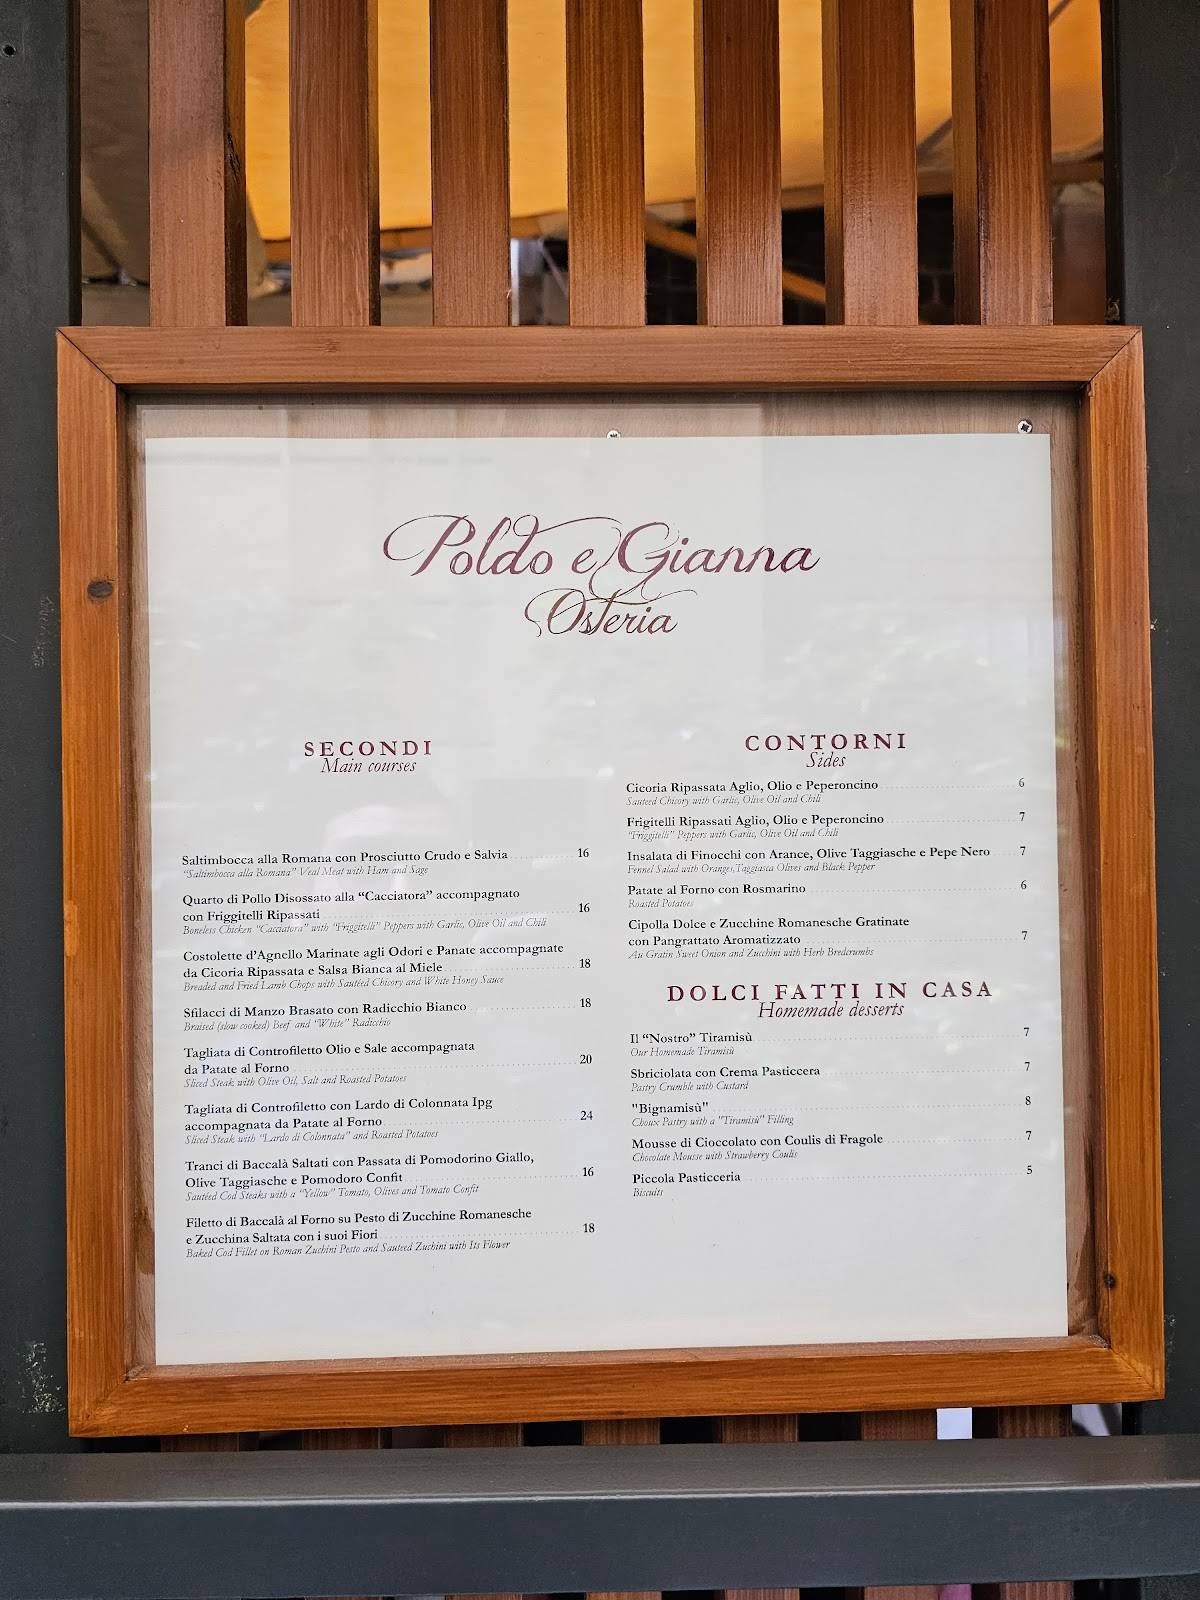 Poldo e Gianna
Osteria
SECONDI
Main courses
Saltimbocca alla Romana con Prosciutto Crudo e Salvia 16
"Saltimbocca alla Romana" Veal Meat with Ham and Sage
Quarto di Pollo Disossato alla “Cacciatora” accompagnato
con Friggitelli Ripassati 16
Boneless Chicken “Cacciatora” with “Friggitelli” Peppers with Garlic, Olive Oil and Chili
Costolette d’Agnello Marinate agli Odori e Panate accompagnate
da Cicoria Ripassata e Salsa Bianca al Miele 18
Breaded and Fried Lamb Chops with Sautéed Chicory and White Honey Sauce
Sfilacci di Manzo Brasato con Radicchio Bianco 18
Braised (slow cooked) Beef and “White” Radicchio
Tagliata di Controfiletto Olio e Sale accompagnata
da Patate al Forno 20
Sliced Steak with Olive Oil, Salt and Roasted Potatoes
Tagliata di Controfiletto con Lardo di Colonnata Ipg
accompagnata da Patate al Forno 24
Sliced Steak with “Lardo di Colonnata” and Roasted Potatoes
Tranci di Baccalà Saltati con Passata di Pomodorino Giallo,
Olive Taggiasche e Pomodoro Confit 16
Sautéed Cod Steaks with a “Yellow” Tomato, Olives and Tomato Confit
Filetto di Baccalà al Forno su Pesto di Zucchine Romanesche
e Zucchina Saltata con i suoi Fiori 18
Baked Cod Fillet on Roman Zuchini Pesto and Sauteed Zuchini with Its Flower
CONTORNI
Sides
Cicoria Ripassata Aglio, Olio e Peperoncino 6
Sauteed Chicory with Garlic, Olive Oil and Chili
Frigitelli Ripassati Aglio, Olio e Peperoncino 7
“Friggitelli” Peppers with Garlic, Olive Oil and Chili
Insalata di Finocchi con Arance, Olive Taggiasche e Pepe Nero 7
Fennel Salad with Oranges,Taggiasca Olives and Black Pepper
Patate al Forno con Rosmarino 6
Roasted Potatoes
Cipolla Dolce e Zucchine Romanesche Gratinate
con Pangrattato Aromatizzato 7
Au Gratin Sweet Onion and Zucchini with Herb Bredcrumbs
DOLCI FATTI IN CASA
Homemade desserts
Il “Nostro” Tiramisù 7
Our Homemade Tiramisù
Sbriciolata con Crema Pasticcera 7
Pastry Crumble with Custard
"Bignamisù" 8
Choux Pastry with a "Tiramisù" Filling
Mousse di Cioccolato con Coulis di Fragole 7
Chocolate Mousse with Strawberry Coulis
Piccola Pasticceria 5
Biscuits